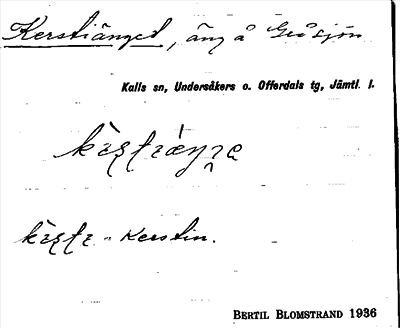 Kerstiänget, äng å Gråsjön
Kalls sn, Undersåkers o. Offerdals tg, Jämtl. l.
Kerstin.
BERTIL BLOMSTRAND 1936